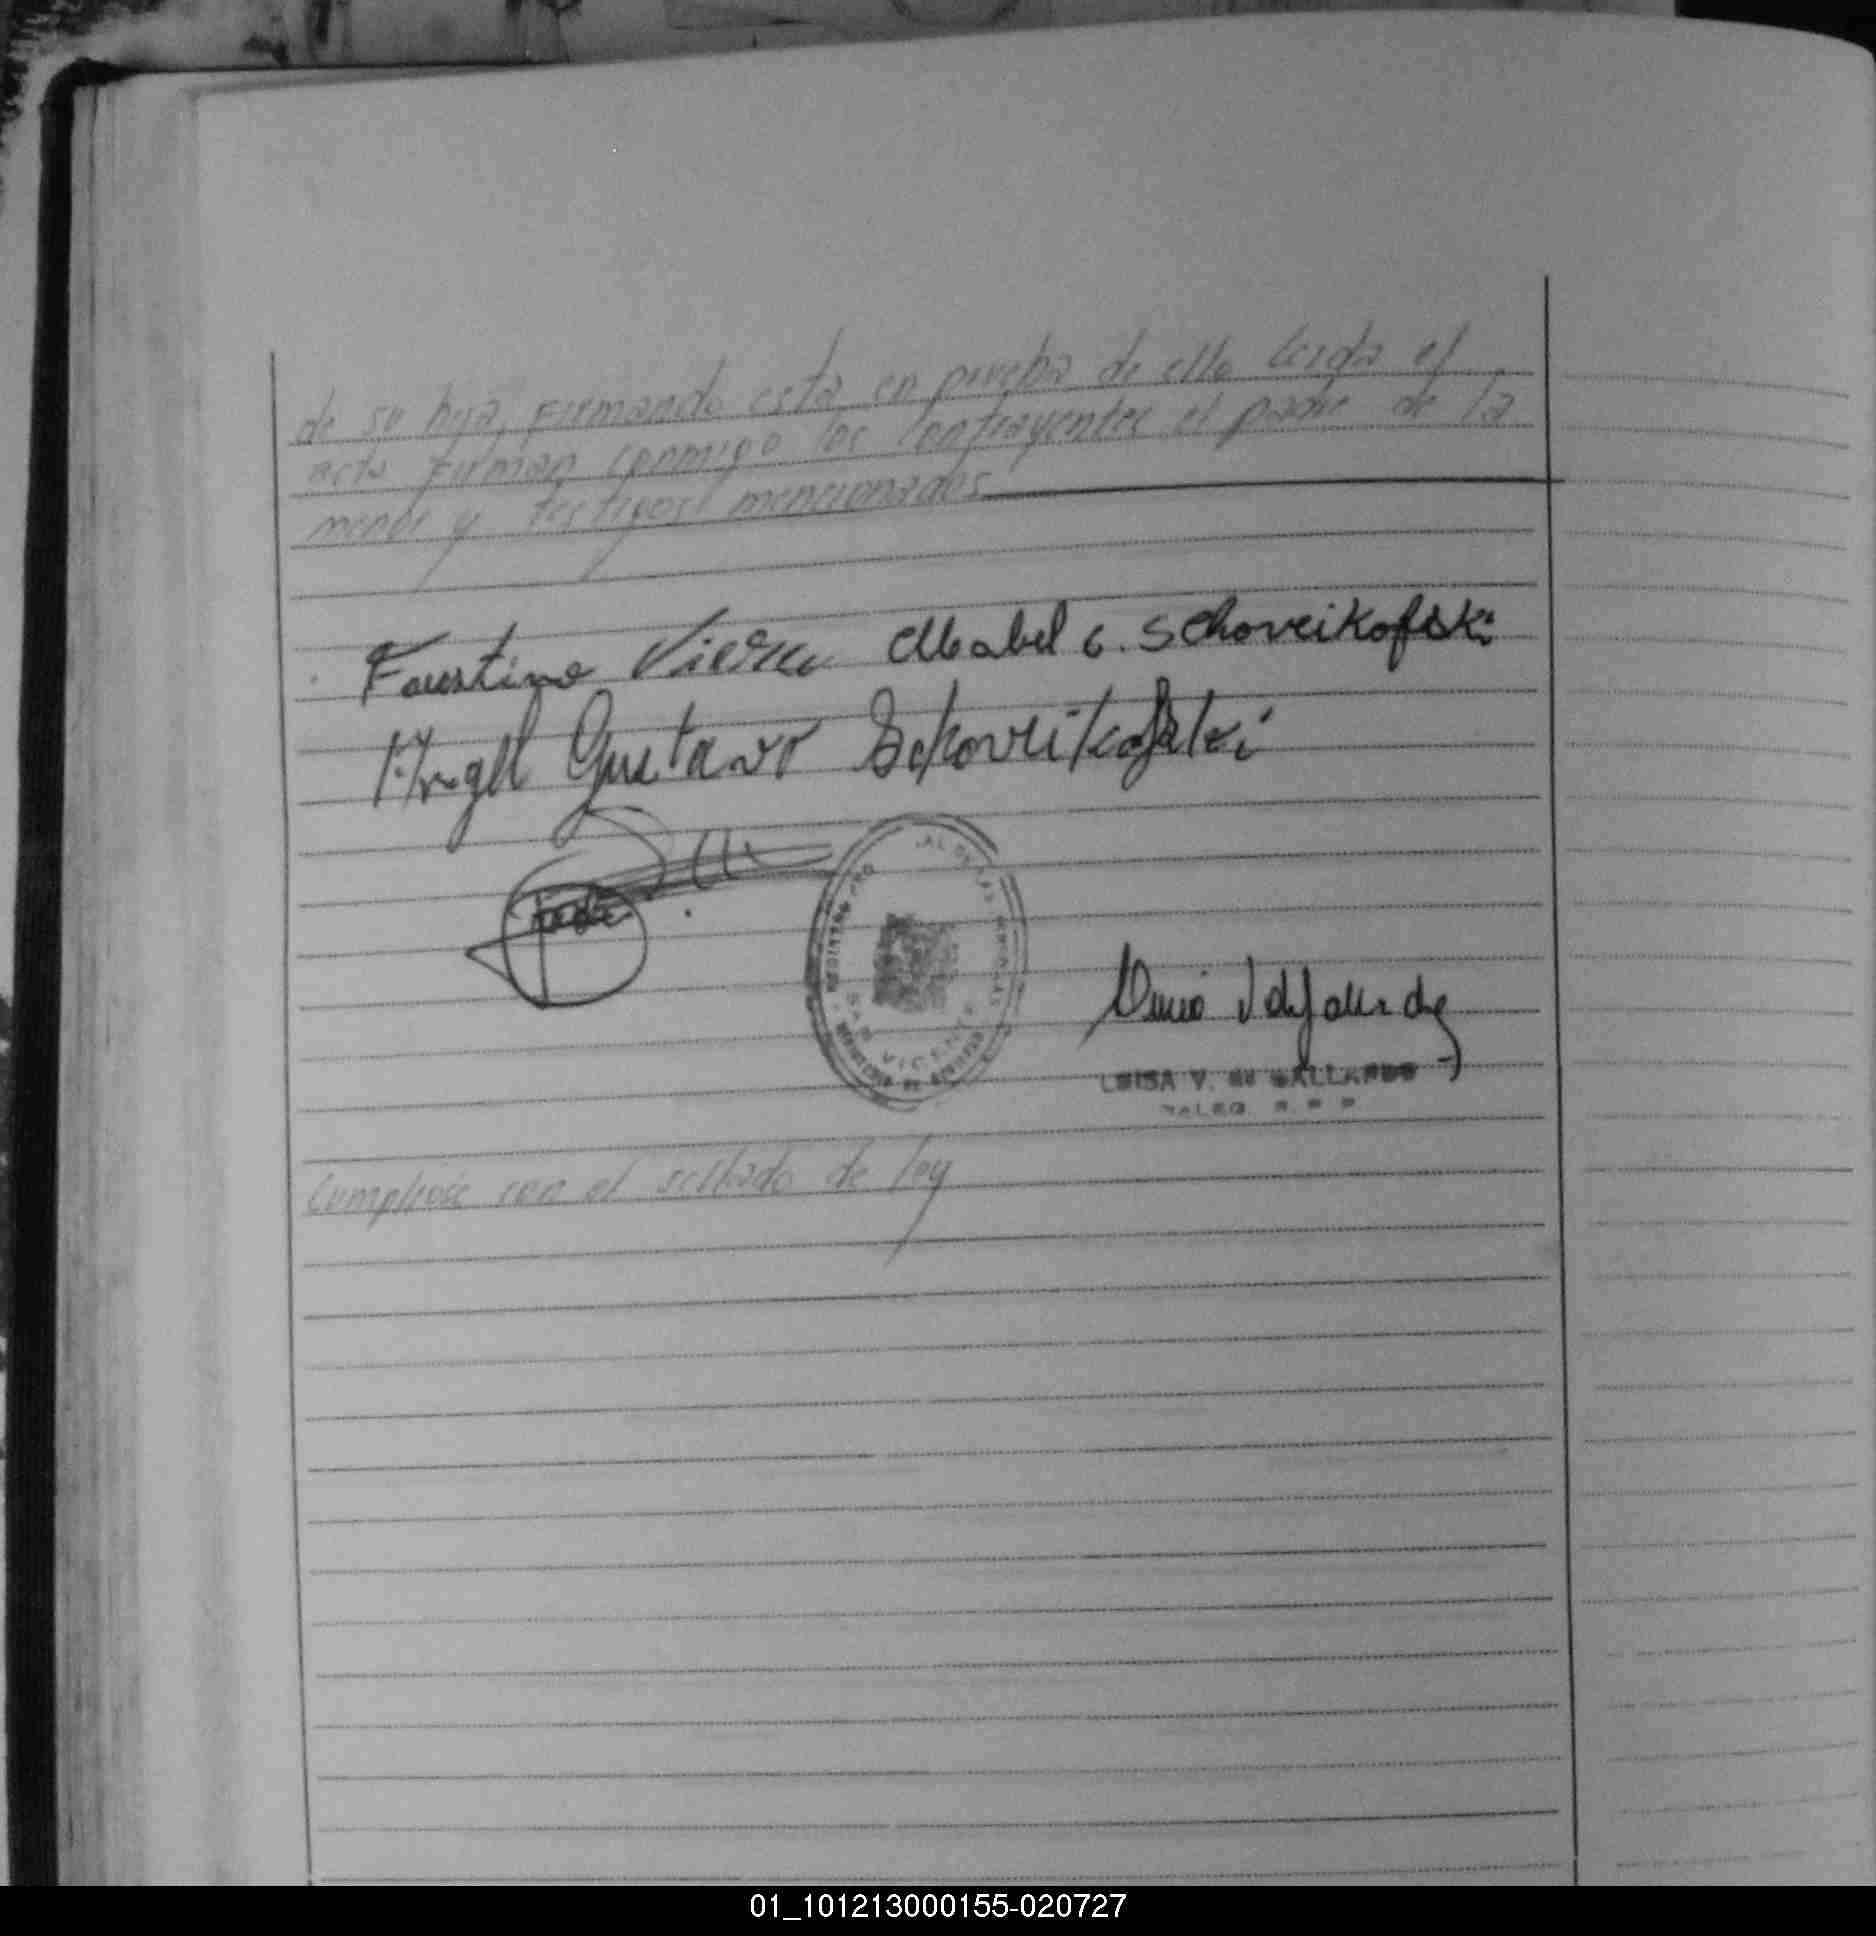 de su hija, firmando esta en prueba de ello leida el
acta firman conmigo los contrayentes el padre de la
menor y testigos mencionados
Faustino Viera Mabel G. Schoveikofski
Angel Gustavo Schoveikofski
SAN VICENTE
LUISA V. de GALLARDO
Cumpliose con el sellado de ley
01_101213000155-020727